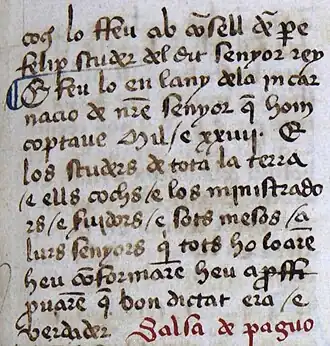 coch lo ffeu ab cōsell de pe
felip studer del dit senyor rey
E feu lo en lany dela in car
nacio de nr̄e senyor q̄ hom
coptaue Mil / e xxiiij. E
los studers de tota la terra
/ e ells cochs / e los ministrado
rs / e suidors / e sots mesos / a
lurs senyors q̄ tots ho loarē
heu cōformarē heu a proffi
ꝓuarē q̄ bon dictat era / e
verdader Salsa de paguo